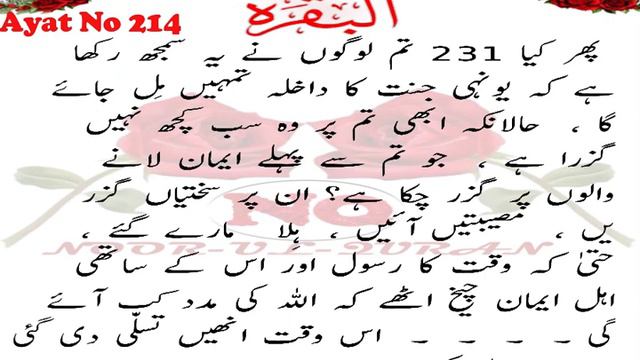 Ayat No 214
البقرة
پھر کیا 231 تم لوگوں نے یہ سمجھ رکھا
ہے کہ یونہی جنت کا داخلہ تمہیں مِل جائے
گا ، حالانکہ ابھی تم پر وہ سب کچھ نہیں
گزرا ہے ، جو تم سے پہلے ایمان لانے
والوں پر گزر چکا ہے؟ ان پر سختیاں گزر
یں ، مصیبتیں آئیں ، ہِلا مارے گئے ،
NOOR-UL-QURAN
حتیٰ کہ وقت کا رسول اور اس کے ساتھی
اہل ایمان چیخ اٹھے کہ اللہ کی مدد کب آئے
گی ۔ ۔ ۔ ۔ اس وقت انھیں تسلّی دی گئی